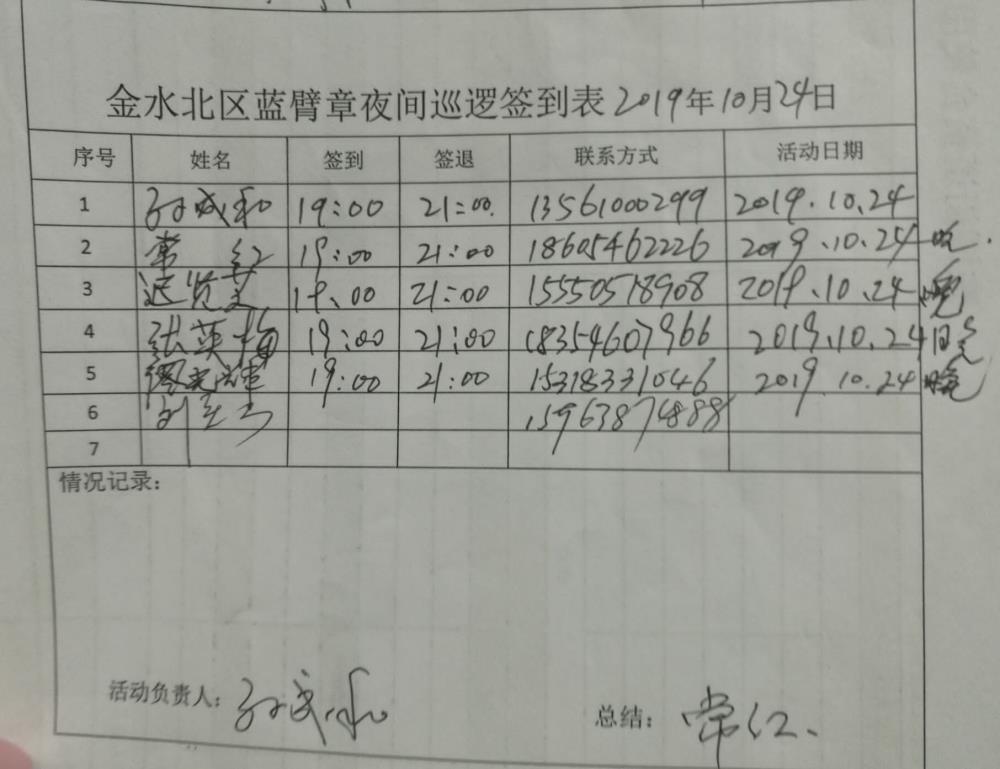 金水北区蓝臂章夜间巡逻签到表 2019年10月24日
序号 姓名 签到 签退 联系方式 活动日期
1 孙成和 19:00 21:00. 13561000299 2019.10.24
2 常红 19:00 21:00 18605462226 2019.10.24 晚.
3 迟贤芝 19:00 21:00 15550578908 2019.10.24 晚
4 张英梅 19:00 21:00 18354607966 2019.10.24日晚
5 21:00 19:00 15318331046 2019 10.24 晚
6 15963874888
7
情况记录:
活动负责人: 孙成和 总结: 常红.